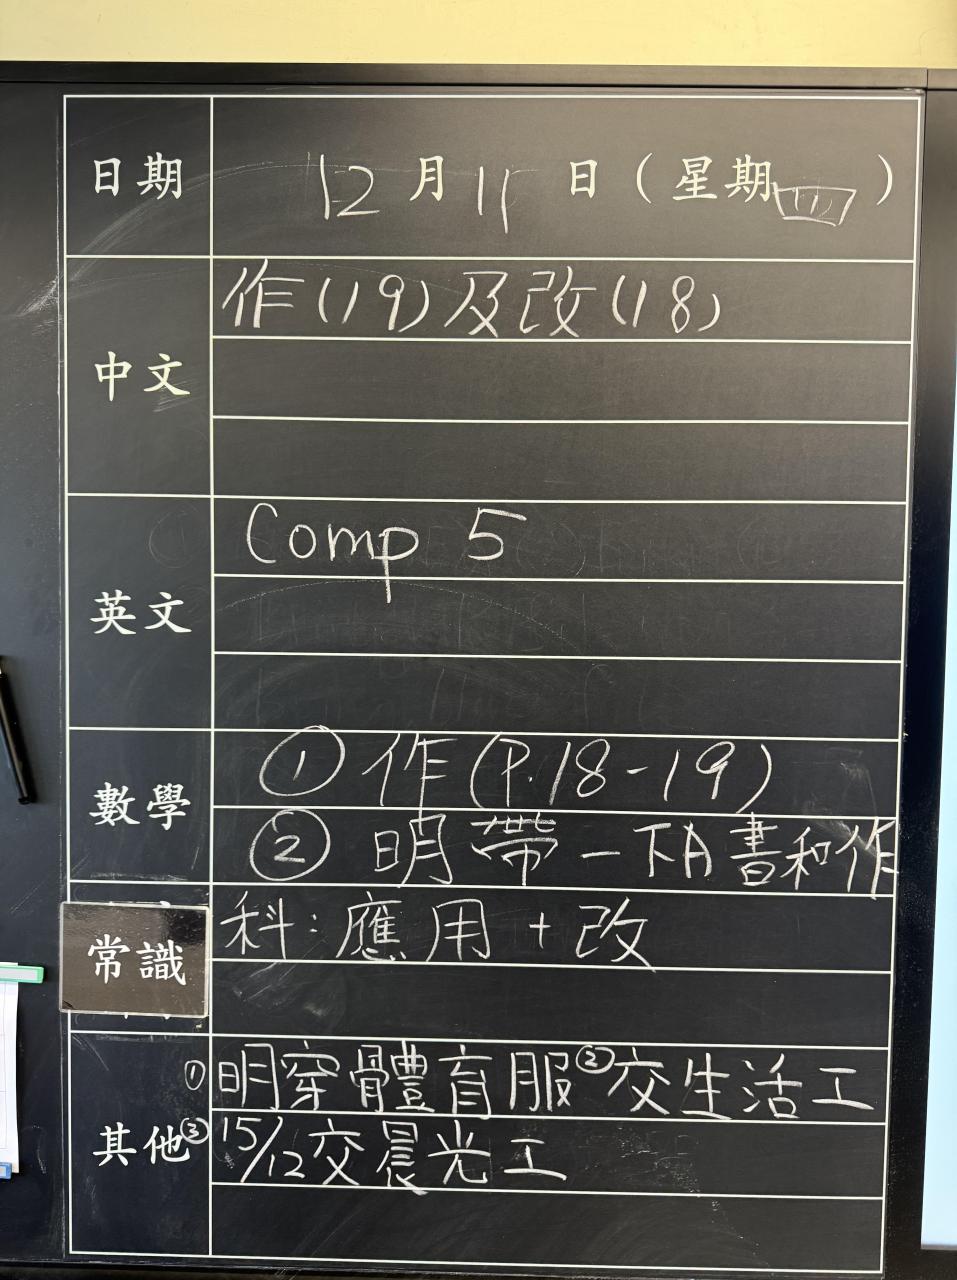 日期 12月11日（星期四）
中文 作(19)及改(18)
英文 Comp 5
數學 ① 作(P.18-19)
② 明帶一下A書和作
常識 科:應用+改
其他 ①明穿體育服②交生活工
③15/12交晨光工